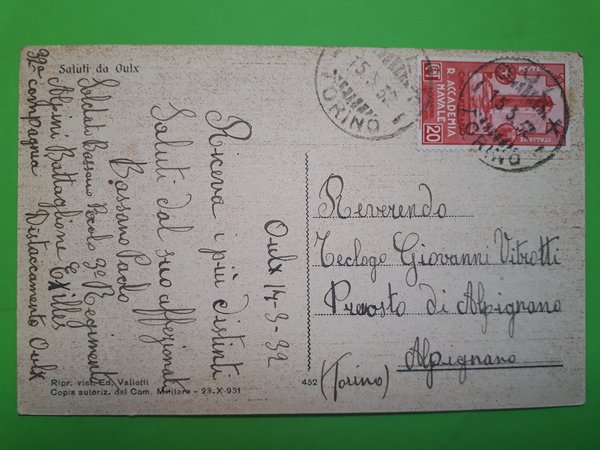 Saluti da Oulx
Oulx 14-3-32
Riceva i più distinti
Saluti dal suo affezionat
Bassano Paolo
Soldato Bassano Paolo 3º Regimento
Alpini Battaglione Exilles
32ª compagnia Distaccamento Oulx
Reverendo
Teologo Giovanni Vitrotti
Prevosto di Alpignano
Alpignano
(Torino)
452
Ripr. viet. Ed. Valletti
Copia autoriz. dal Com. Militare - 23-X-931
R. ACCADEMIA
NAVALE
CENT
20
ITALIANE
TORINO
TORINO